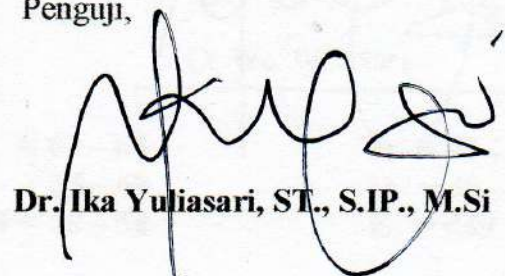 Penguji,
Dr. Ika Yuliasari, ST., S.IP., M.Si